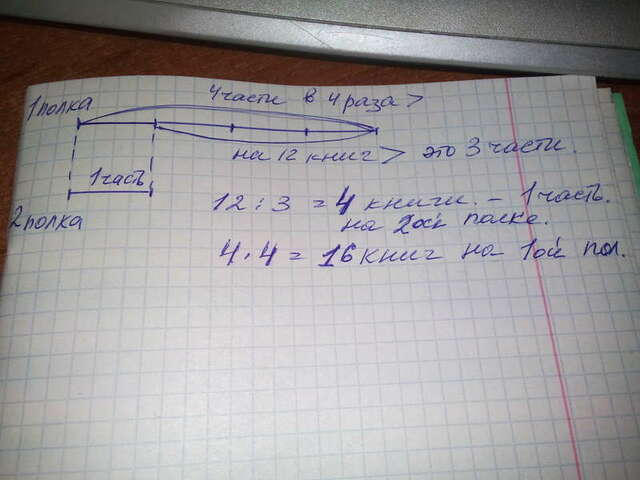 1 полка 4 части в 4 раза >
на 12 книг > это 3 части.
1 часть
2 полка
12 : 3 = 4 книги. - 1 часть.
на 2ой полке.
4 · 4 = 16 книг на 1ой пол.